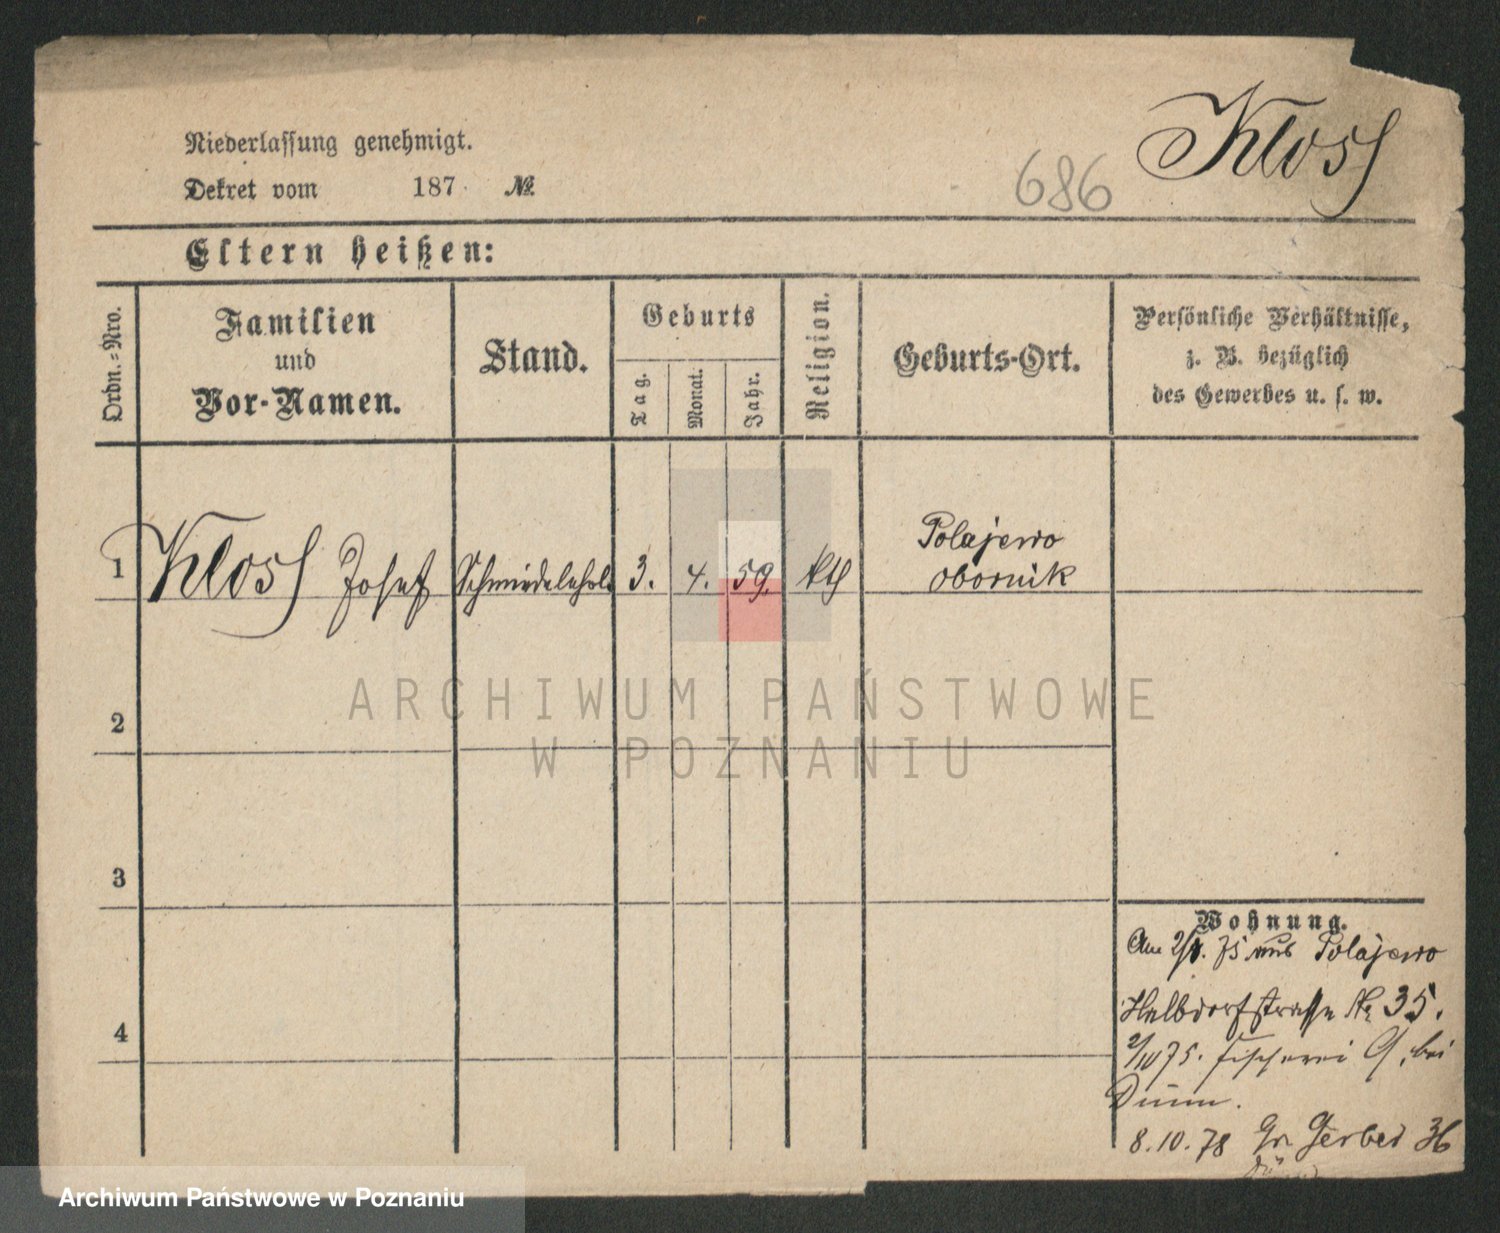 Niederlassung genehmigt.
Dekret vom 187 №
686
Kloss
Eltern heißen:
Ordn.-Nro.
Familien
und
Vor-Namen.
Stand.
Geburts
Tag.
Monat.
Jahr.
Religion.
Geburts-Ort.
Persönliche Verhältnisse,
z. B. bezüglich
des Gewerbes u. s. w.
1 Kloss Josef Schmiedelehrl. 3. 4. 59. kth
Polajewo
Obornik
ARCHIWUM PAŃSTWOWE
W POZNANIU
2
3
4
Wohnung.
Am 75 aus Polajewo
Halbdorfstrasse Nr 35.
75. Fischerei 9, bei
8.10.78 Gr. Gerber 36
Archiwum Państwowe w Poznaniu